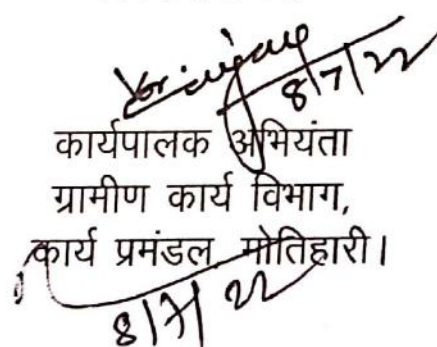 8/7/22
कार्यपालक अभियंता
ग्रामीण कार्य विभाग,
कार्य प्रमंडल मोतिहारी।
8/7/22